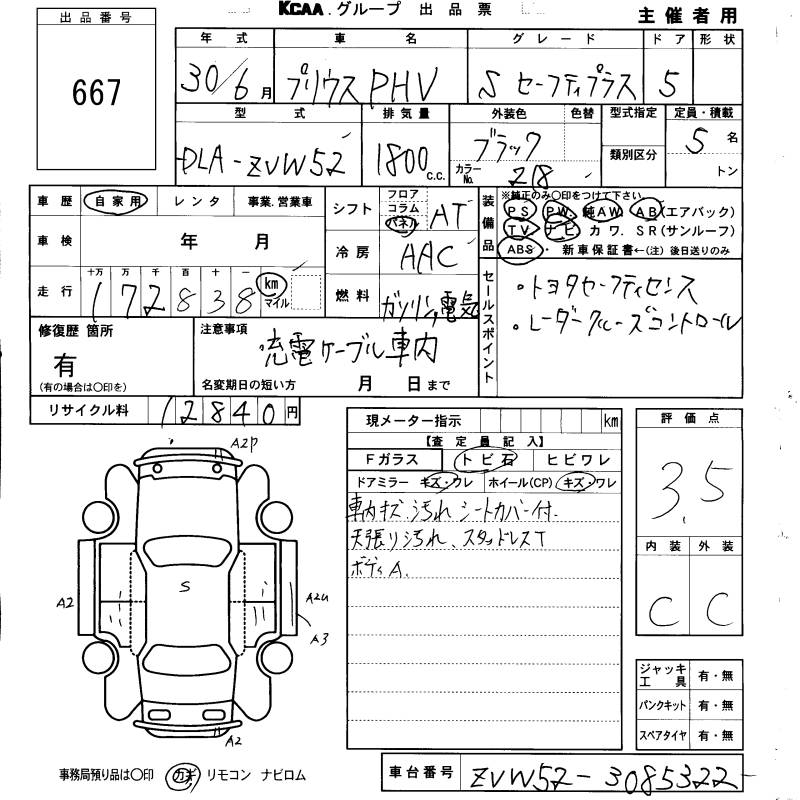 KCAA.グループ 出品票
主催者用
出品番号
667
年式 車名 グレード ドア 形状
30/6月 プリウス PHV S セーフティプラス 5
型式 排気量 外装色 色替 型式指定 定員・積載
DLA-ZVW52 1800 C.C. ブラック 5名
カラーNo. 218 類別区分 トン
車歴 自家用 レンタ 事業.営業車
シフト フロア コラム パネル AT
装備品 ※純正のみ〇印をつけて下さい
PS PW 純AW AB(エアバック)
TV ナビ カワ. SR(サンルーフ)
ABS・新車保証書←(注)後日送りのみ
車検 年 月
冷房 AAC
走行 十万 万 千 百 十 一
172838 km マイル
燃料 ガソリン,電気
セールスポイント
・トヨタセーフティセンス
・レーダークルーズコントロール
修復歴 箇所
有
(有の場合は〇印を)
注意事項
充電ケーブル車内
名変期日の短い方 月 日まで
リサイクル料 12840円
現メーター指示 km
【査定員記入】
Fガラス トビ石 ヒビワレ
ドアミラー キズ・ワレ ホイール(CP) キズ・ワレ
車内キズ 汚れ シートカバー付.
天張り汚れ、スタッドレスT
ボディA.
評価点
3.5
内装 外装
C C
A2P
S
A2
A2U
A3
A2
ジャッキ工具 有・無
パンクキット 有・無
スペアタイヤ 有・無
事務局預り品は〇印 カギ リモコン ナビロム
車台番号 ZVW52-3085322-